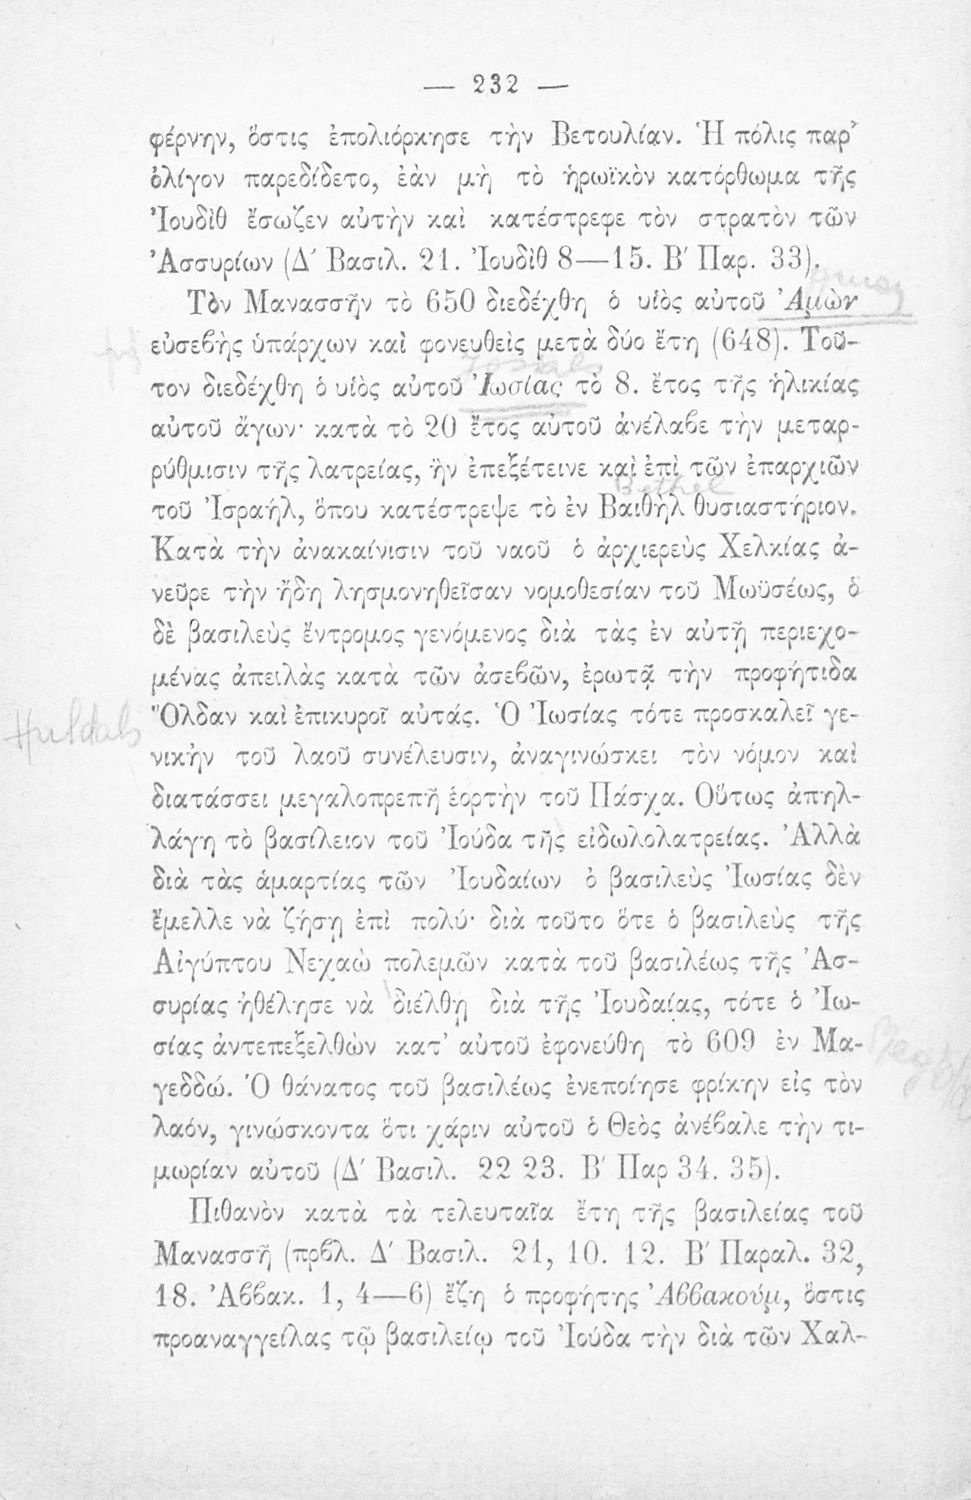 — 232 —
φέρνην, ὅστις ἐπολιόρκησε τὴν Βετουλίαν. Ἡ πόλις παρ'
ὀλίγον παρεδίδετο, ἐὰν μὴ τὸ ἡρωϊκὸν κατόρθωμα τῆς
Ἰουδὶθ ἔσωζεν αὐτὴν καὶ κατέστρεφε τὸν στρατὸν τῶν
Ἀσσυρίων (Δ' Βασιλ. 21. Ἰουδὶθ 8—15. Β' Παρ. 33).
Τὸν Μανασσῆν τὸ 650 διεδέχθη ὁ υἱὸς αὐτοῦ Ἀμὼν
εὐσεβὴς ὑπάρχων καὶ φονευθεὶς μετὰ δύο ἔτη (648). Τοῦ-
Josiah
τον διεδέχθη ὁ υἱὸς αὐτοῦ Ἰωσίας τὸ 8. ἔτος τῆς ἡλικίας
αὐτοῦ ἄγων· κατὰ τὸ 20 ἔτος αὐτοῦ ἀνέλαβε τὴν μεταρ-
ρύθμισιν τῆς λατρείας, ἣν ἐπεξέτεινε καὶ ἐπὶ τῶν ἐπαρχιῶν
Bethel
τοῦ Ἰσραήλ, ὅπου κατέστρεψε τὸ ἐν Βαιθὴλ θυσιαστήριον.
Κατὰ τὴν ἀνακαίνισιν τοῦ ναοῦ ὁ ἀρχιερεὺς Χελκίας ἀ-
νεῦρε τὴν ἤδη λησμονηθεῖσαν νομοθεσίαν τοῦ Μωϋσέως, ὁ
δὲ βασιλεὺς ἔντρομος γενόμενος διὰ τὰς ἐν αὐτῇ περιεχο-
μένας ἀπειλὰς κατὰ τῶν ἀσεβῶν, ἐρωτᾷ τὴν προφήτιδα
Huldah
Ὄλδαν καὶ ἐπικυροῖ αὐτάς. Ὁ Ἰωσίας τότε προσκαλεῖ γε-
νικὴν τοῦ λαοῦ συνέλευσιν, ἀναγινώσκει τὸν νόμον καὶ
διατάσσει μεγαλοπρεπῆ ἑορτὴν τοῦ Πάσχα. Οὕτως ἀπηλ-
λάγη τὸ βασίλειον τοῦ Ἰούδα τῆς εἰδωλολατρείας. Ἀλλὰ
διὰ τὰς ἁμαρτίας τῶν Ἰουδαίων ὁ βασιλεὺς Ἰωσίας δὲν
ἔμελλε νὰ ζήσῃ ἐπὶ πολύ· διὰ τοῦτο ὅτε ὁ βασιλεὺς τῆς
Αἰγύπτου Νεχαὼ πολεμῶν κατὰ τοῦ βασιλέως τῆς Ἀσ-
συρίας ἠθέλησε νὰ διέλθῃ διὰ τῆς Ἰουδαίας, τότε ὁ Ἰω-
σίας ἀντεπεξελθὼν κατ' αὐτοῦ ἐφονεύθη τὸ 609 ἐν Μα-
γεδδώ. Ὁ θάνατος τοῦ βασιλέως ἐνεποίησε φρίκην εἰς τὸν
λαόν, γινώσκοντα ὅτι χάριν αὐτοῦ ὁ Θεὸς ἀνέβαλε τὴν τι-
μωρίαν αὐτοῦ (Δ' Βασιλ. 22 23. Β' Παρ 34. 35).
Πιθανὸν κατὰ τὰ τελευταῖα ἔτη τῆς βασιλείας τοῦ
Μανασσῆ (πρβλ. Δ' Βασιλ. 21, 10. 12. Β' Παραλ. 32,
18. Ἀββακ. 1, 4—6) ἔζη ὁ προφήτης Ἀββακούμ, ὅστις
προαναγγείλας τῷ βασιλείῳ τοῦ Ἰούδα τὴν διὰ τῶν Χαλ-